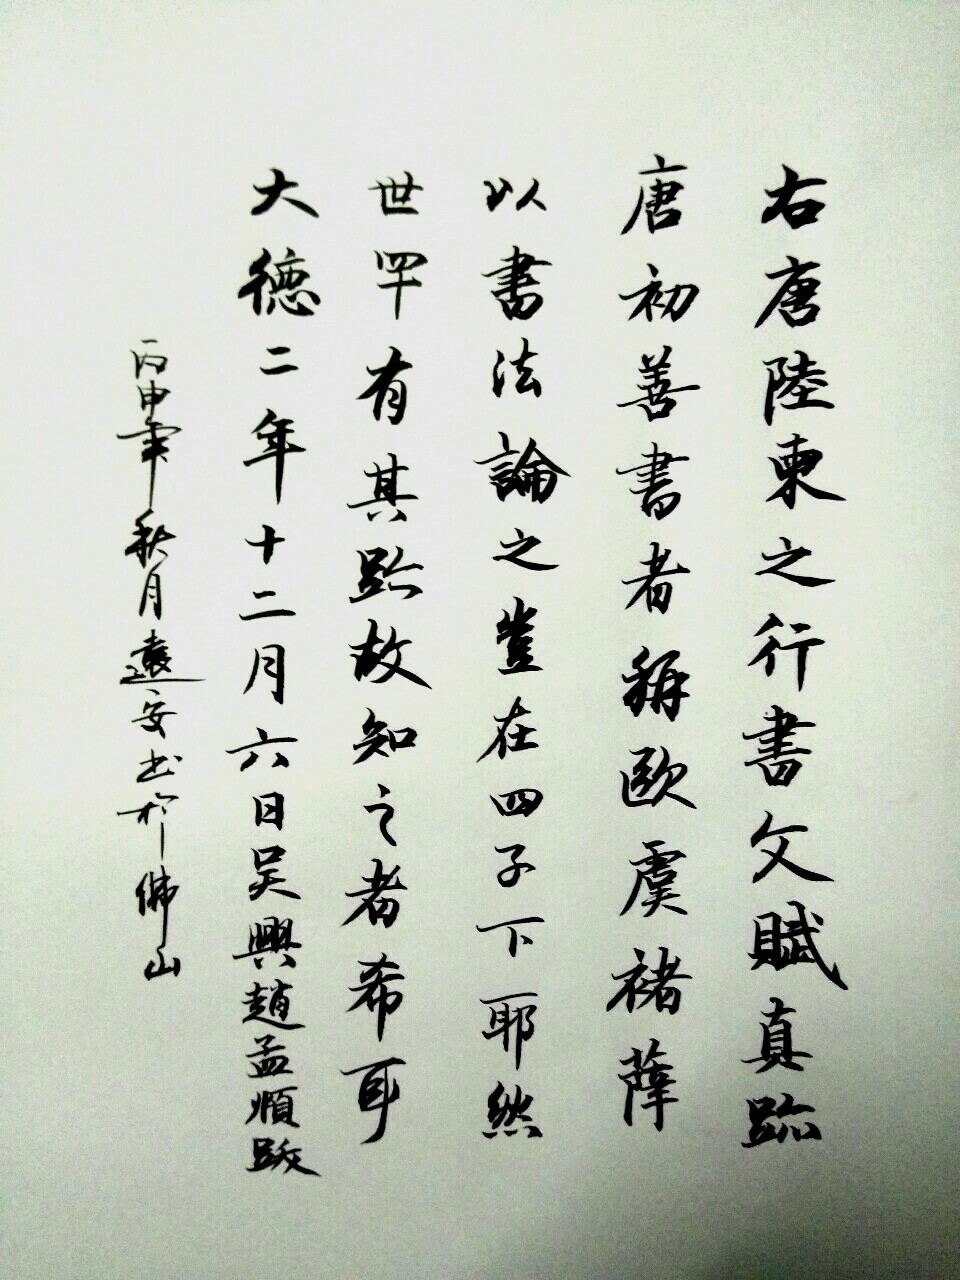 右唐陸柬之行書文賦真跡
唐初善書者稱歐虞褚薛
以書法論之豈在四子下耶然
世罕有其跡故知之者希耳
大德二年十二月六日吴興趙孟順跋
丙申年秋月遠安书於佛山